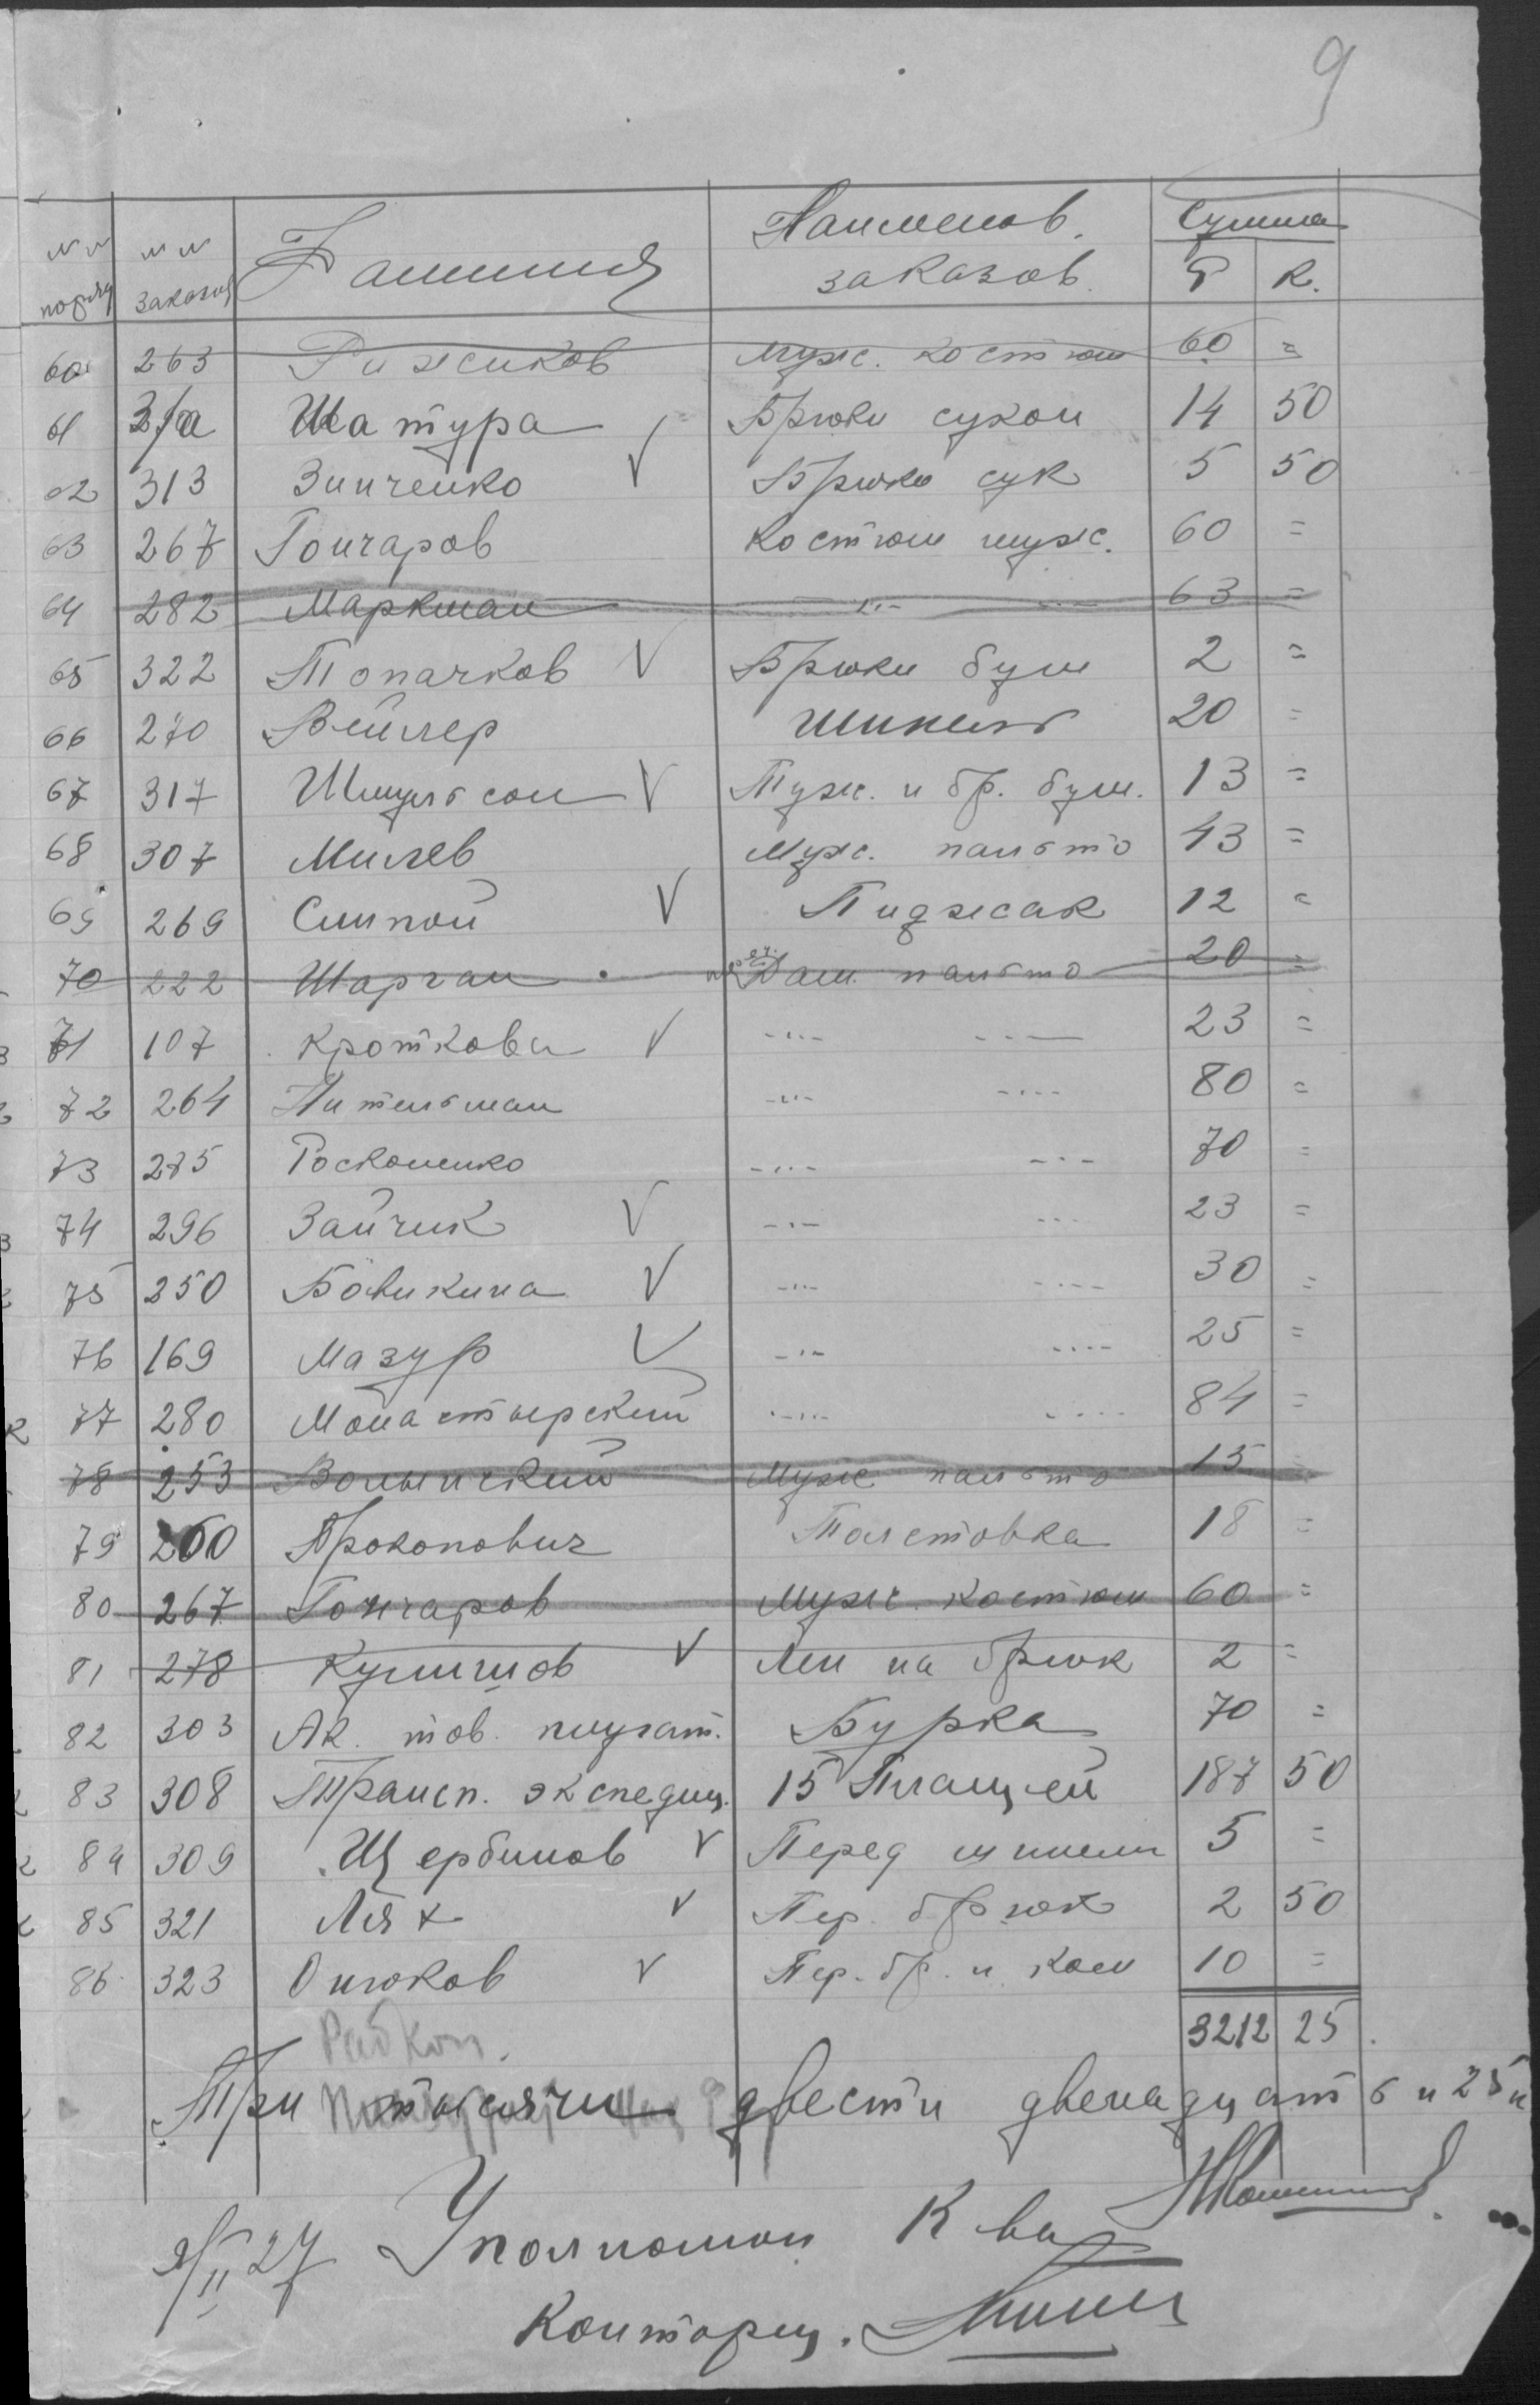 9
№№ поряд №№ заказа Фамилия Наименов. заказов. Сумма Р К.
60 263 Рижиков Мужс. костюм 60 =
61 31а Шатура Брюки сукон 14 50
62 313 Зинченко V Брюки сук 5 50
63 267 Гончаров Костюм мужс. 60 =
64 282 Маркман -"- -"- 63 =
65 322 Топачков V Брюки бум 2 =
66 270 Вейлер Шинель 20 =
67 317 Шмульсон V Тужс. и бр. бум. 13 =
68 307 Милев Мужс. пальто 43 =
69 269 Слипой V Пиджсак 12 =
70 222 Шарган Дам. пальто 20 =
71 107 Кроткова V -"- -"- 23 =
72 264 Нительман -"- -"- 80 =
73 275 Росконенко -"- -"- 70 =
74 296 Зайчик V -"- -"- 23 =
75 250 Бовикина V -"- -"- 30 =
76 169 Мазур V -"- -"- 25 =
77 280 Монастырский -"- -"- 84 =
78 253 Волынский Мужс пальто 15 =
79 260 Прокопович Толстовка 18 =
80 267 Гончаров Мужс. костюм 60 =
81 278 V на брюк 2 =
82 303 Ак. тов. Бурка 70 =
83 308 Трансп. экспедиц. 15 Плащей 187 50
84 309 Щербинов V Перед шинели 5 =
85 321 Лях V Пер. брюк 2 50
86 323 Онюков V Пер. бр. и 10 =
3212 25.
Рабкоп.
Три тысячи двести двенадцать и 25 к
II 27 Уполномоч К ва
Конторщ.